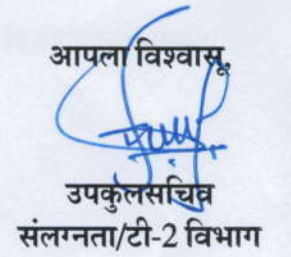 आपला विश्वासू,
उपकुलसचिव
संलग्नता/टी-2 विभाग